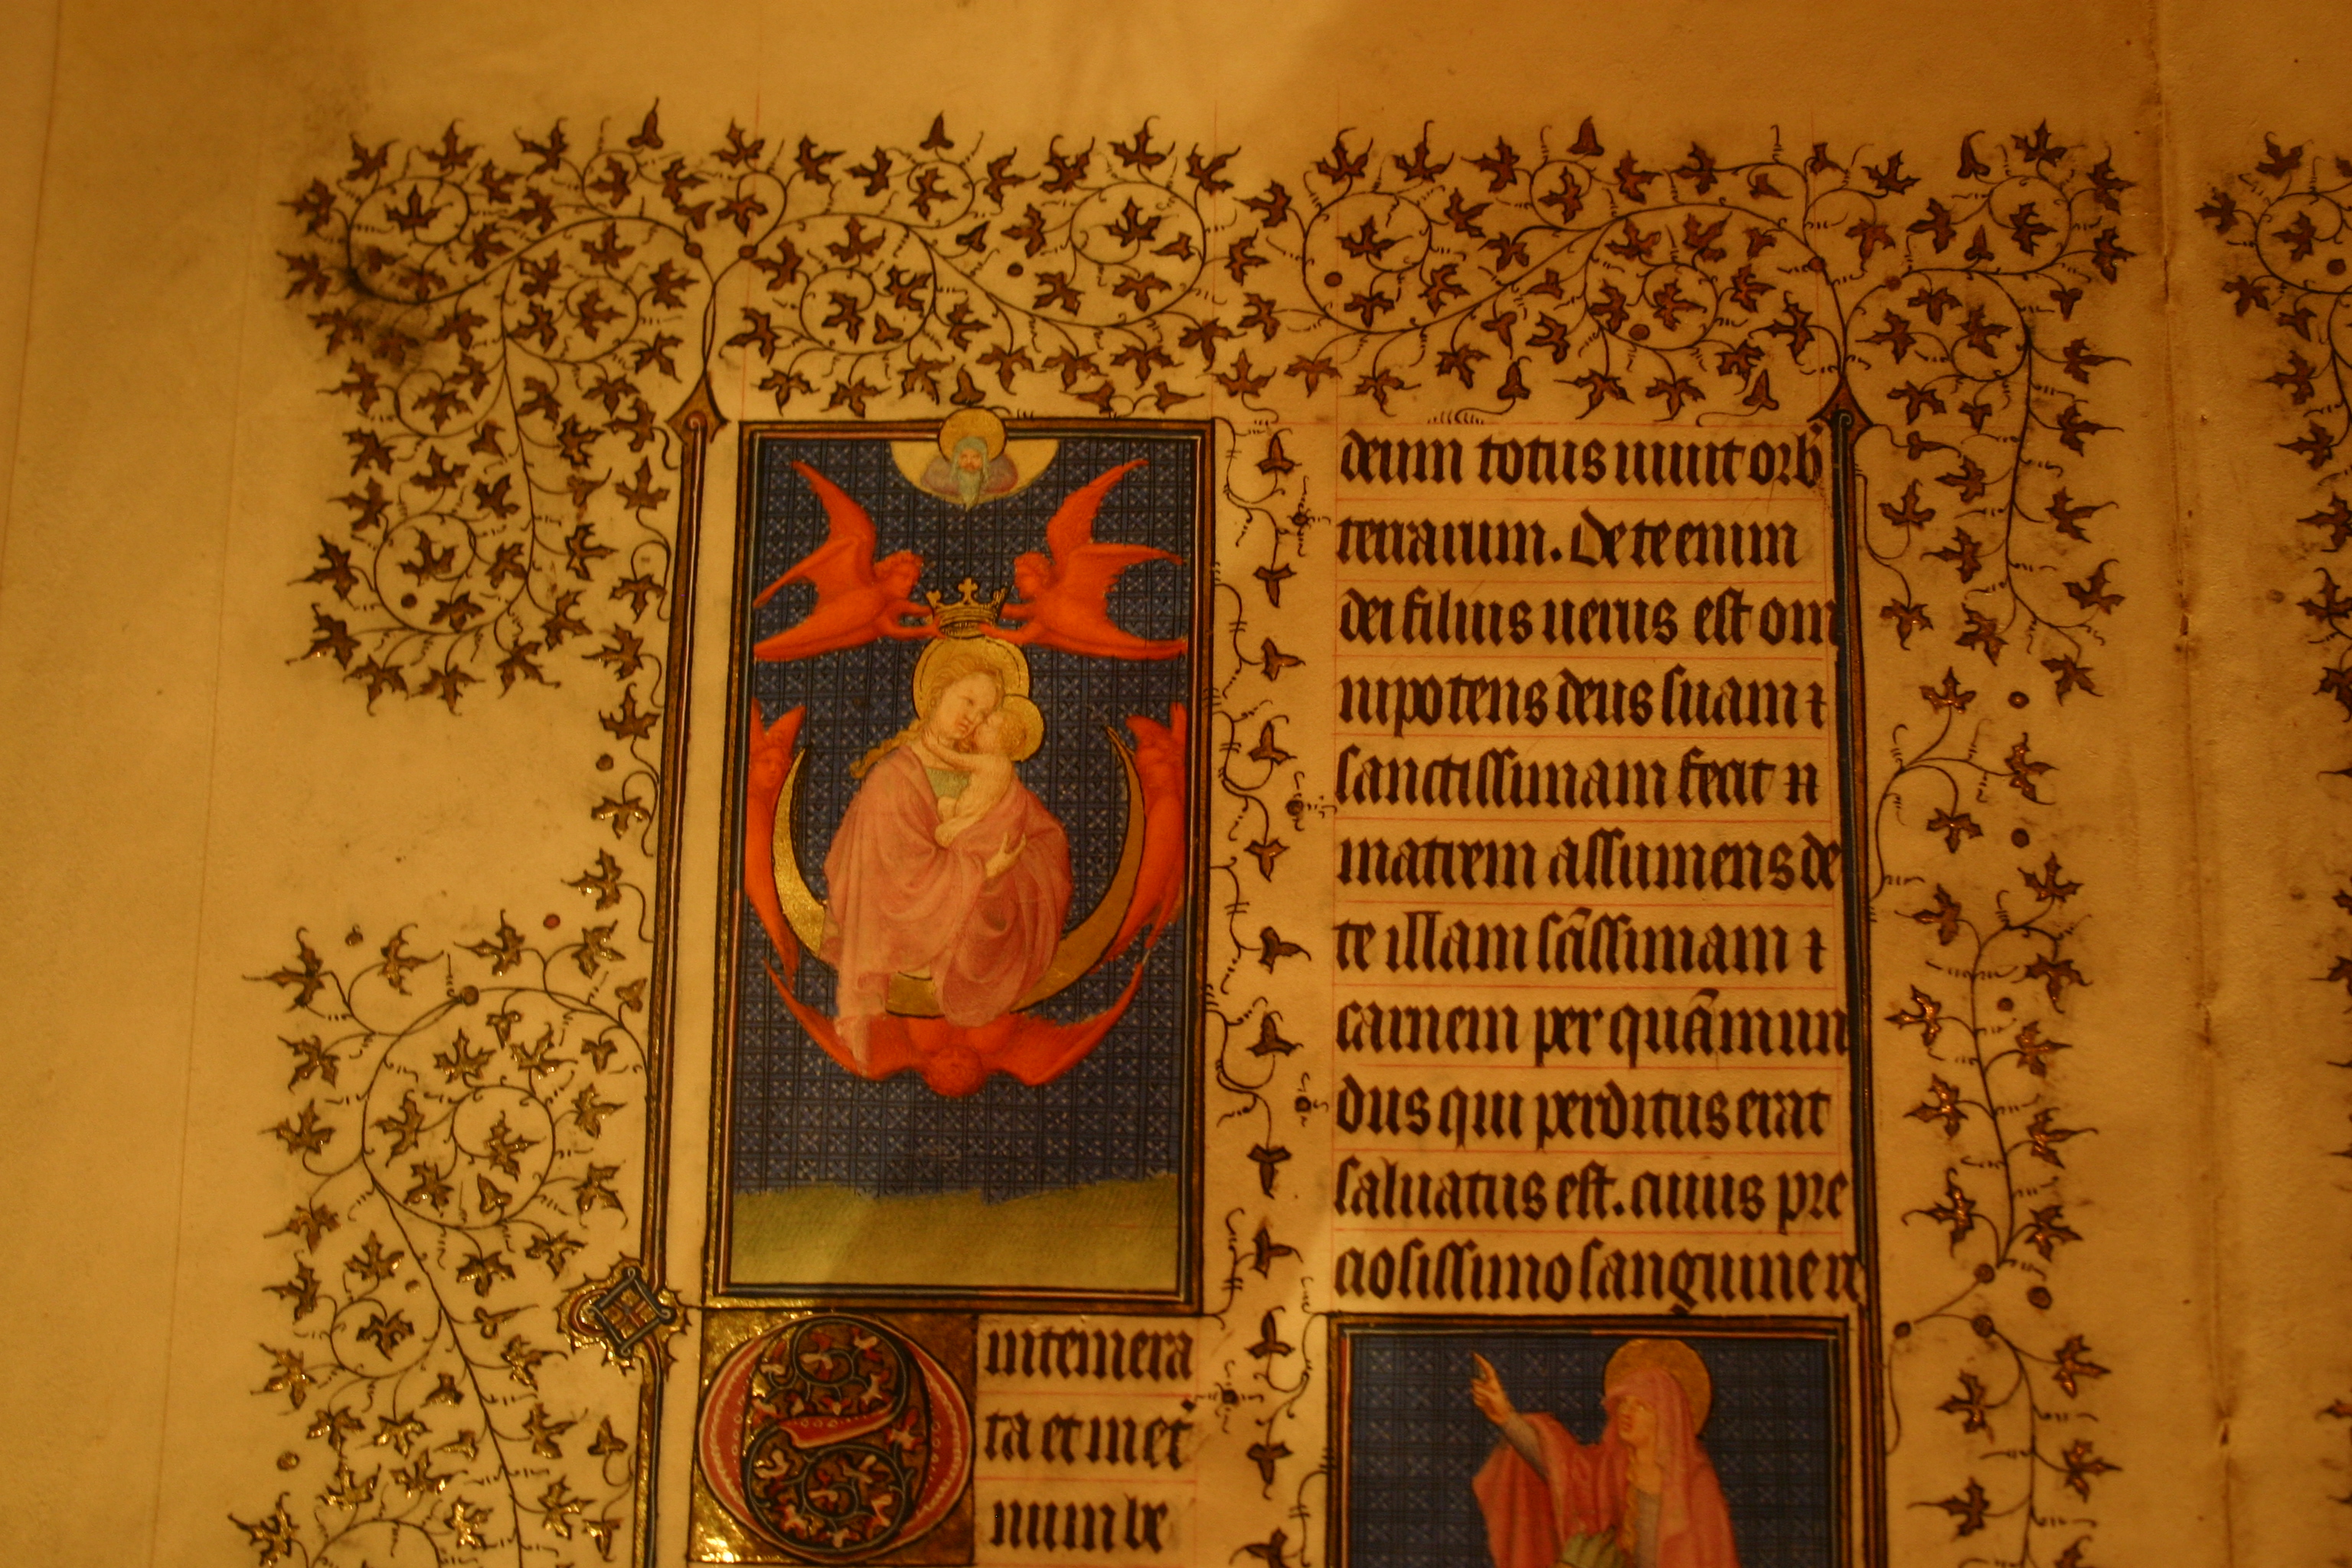 O intemera
ta et in et̾
num be
deum totus uiuit orb̾
terrarum. De te enim
dei filius uerus est om
nipotens deus suam ⁊
sanctissimam fecit
matrem assumens de
te illam sc̄issimam ⁊
carnem per quā mun
dus qui perditus erat
saluatus est. cuius pre
ciosissimo sanguine